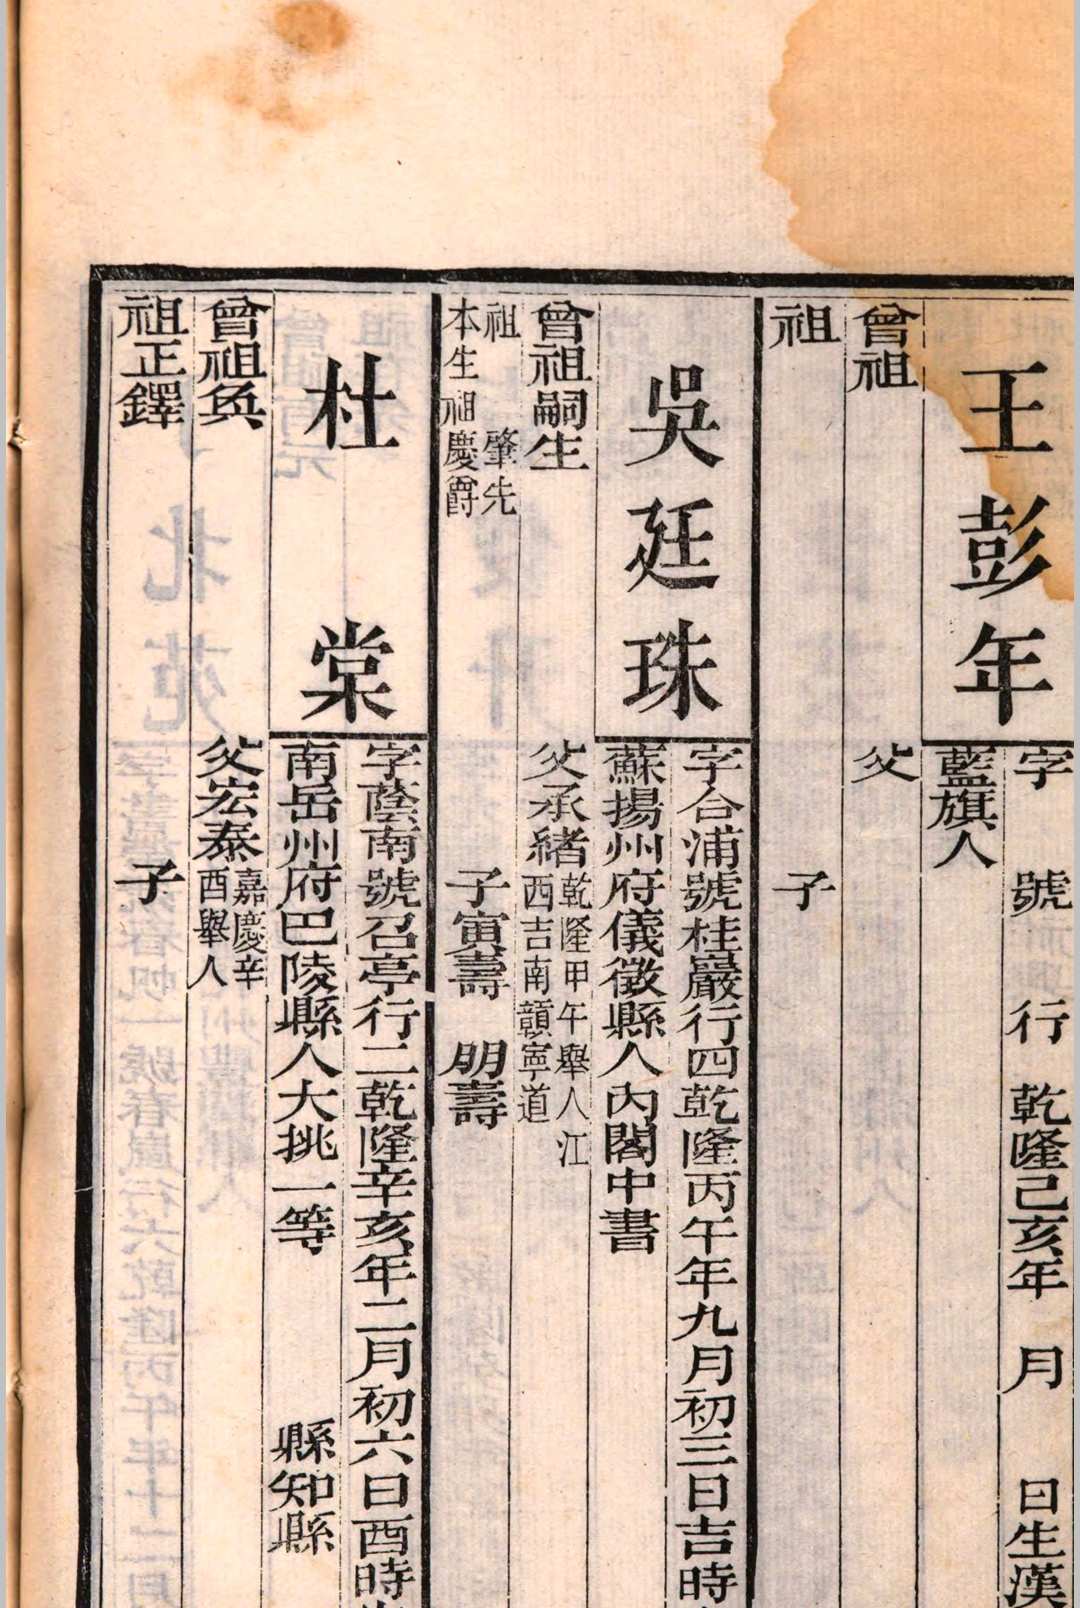 王彭年
字　號　行　乾隆己亥年　月　日生漢
藍旗人
曾祖　父
祖　子
吳廷珠
字合浦號桂巖行四乾隆丙午年九月初三日吉時
蘇揚州府儀徵縣人內閣中書
曾祖嗣生　父承緒乾隆甲午舉人江
西吉南贛寧道
祖　肇先
本生祖慶爵　子寅壽　朋壽
杜　棠
字蔭南號召亭行二乾隆辛亥年二月初六日酉時
南岳州府巴陵縣人大挑一等　縣知縣
曾祖奐　父宏泰嘉慶辛
酉舉人
祖正鐸　子